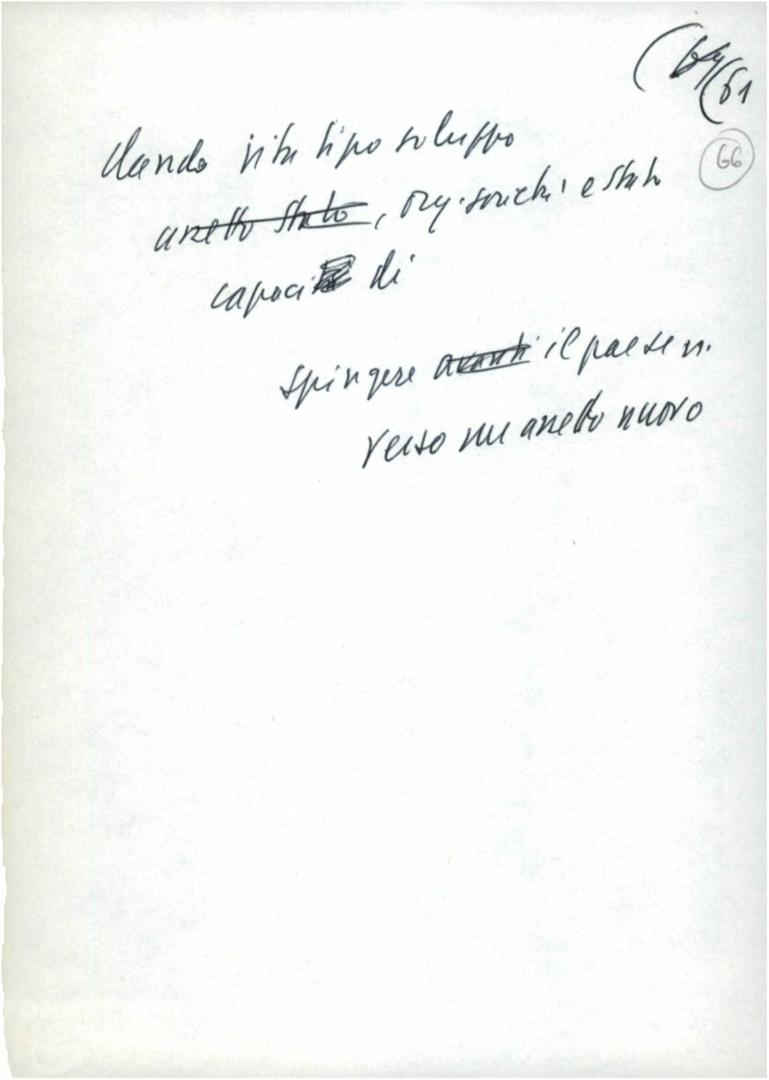 (64 (61
66
dando vita tipo sviluppo
assetto stato, org. società e stato
capaci di
spingere avanti il paese
verso un assetto nuovo